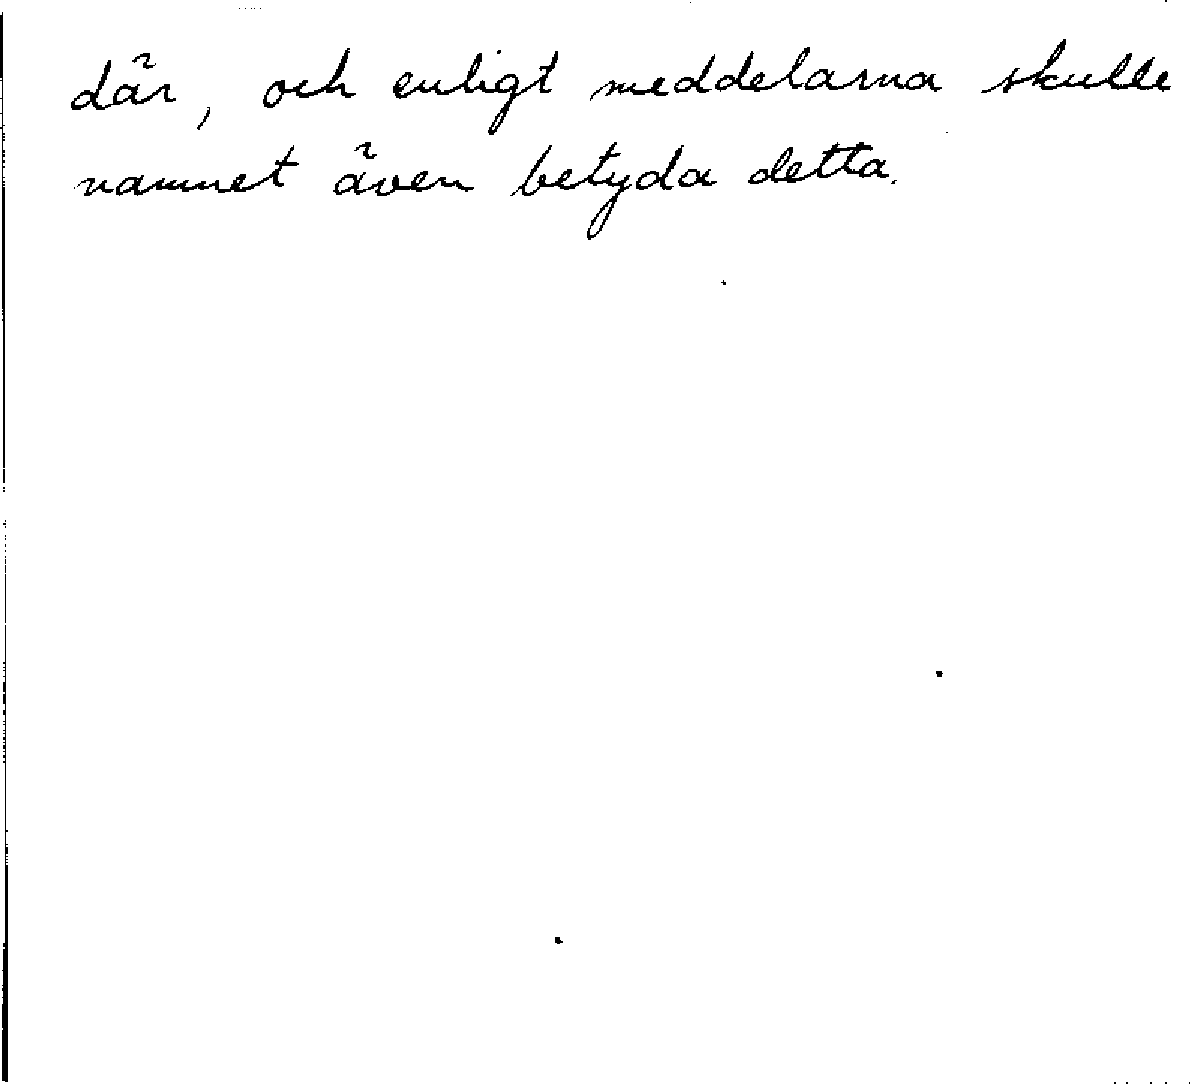 där, och enligt meddelarna skulle
namnet även betyda detta.